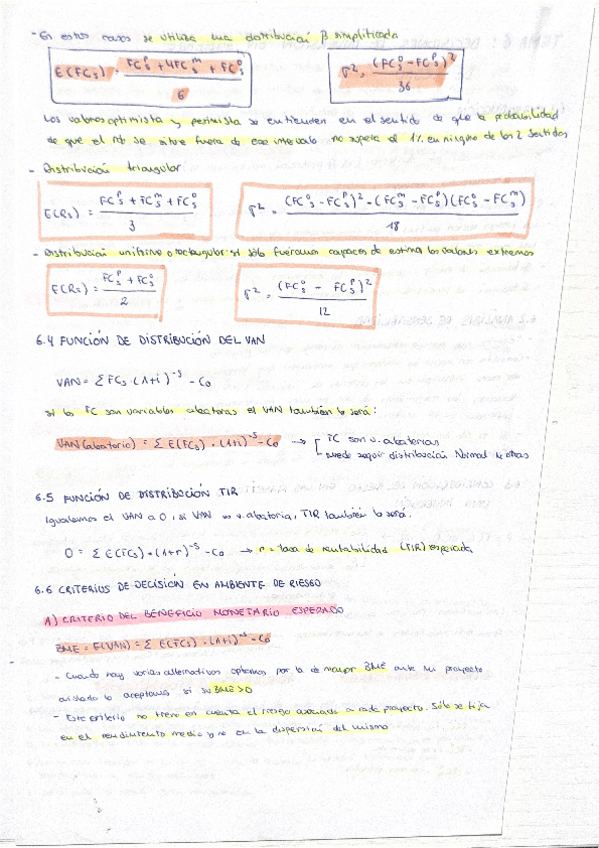 - En estos casos se utiliza una distribución β simplificada
E(FCs) = (FCsᵖ + 4FCsᵐ + FCsᵒ) / 6    σ² = (FCsᵒ - FCsᵖ)² / 36
Los valores optimista y pesimista se entienden en el sentido de que la probabilidad
de que el rdo se sitúe fuera de ese intervalo no supera el 1% en ninguno de los 2 sentidos
- Distribución triangular
E(Rs) = (FCsᵖ + FCsᵐ + FCsᵒ) / 3    σ² = ((FCsᵒ - FCsᵖ)² - (FCsᵐ - FCsᵖ)(FCsᵒ - FCsᵐ)) / 18
- Distribución uniforme o rectangular: si sólo fuéramos capaces de estimar los valores extremos
E(Rs) = (FCsᵖ + FCsᵒ) / 2    σ² = (FCsᵒ - FCsᵖ)² / 12
6.4 FUNCIÓN DE DISTRIBUCIÓN DEL VAN
VAN = Σ FCs · (1+i)⁻ˢ - Co
si los FC son variables aleatorias el VAN también lo será:
VAN (aleatorio) = Σ E(FCs) · (1+i)⁻ˢ - Co → [ FC son v. aleatorias
puede seguir distribución Normal u otras
6.5 FUNCIÓN DE DISTRIBUCIÓN TIR
Igualamos el VAN a 0, si VAN es v. aleatoria, TIR también lo será.
0 = Σ E(FCs) · (1+r)⁻ˢ - Co → r = tasa de rentabilidad (TIR) esperada
6.6 CRITERIOS DE DECISIÓN EN AMBIENTE DE RIESGO
A) CRITERIO DEL BENEFICIO MONETARIO ESPERADO
BME = E(VAN) = Σ E(FCs) · (1+i)⁻ˢ - Co
- Cuando hay varias alternativas optamos por la de mayor BME ante un proyecto
aislado lo aceptamos si su BME>0
- Este criterio no tiene en cuenta el riesgo asociado a cada proyecto. Sólo se fija
en el rendimiento medio y no en la dispersión del mismo